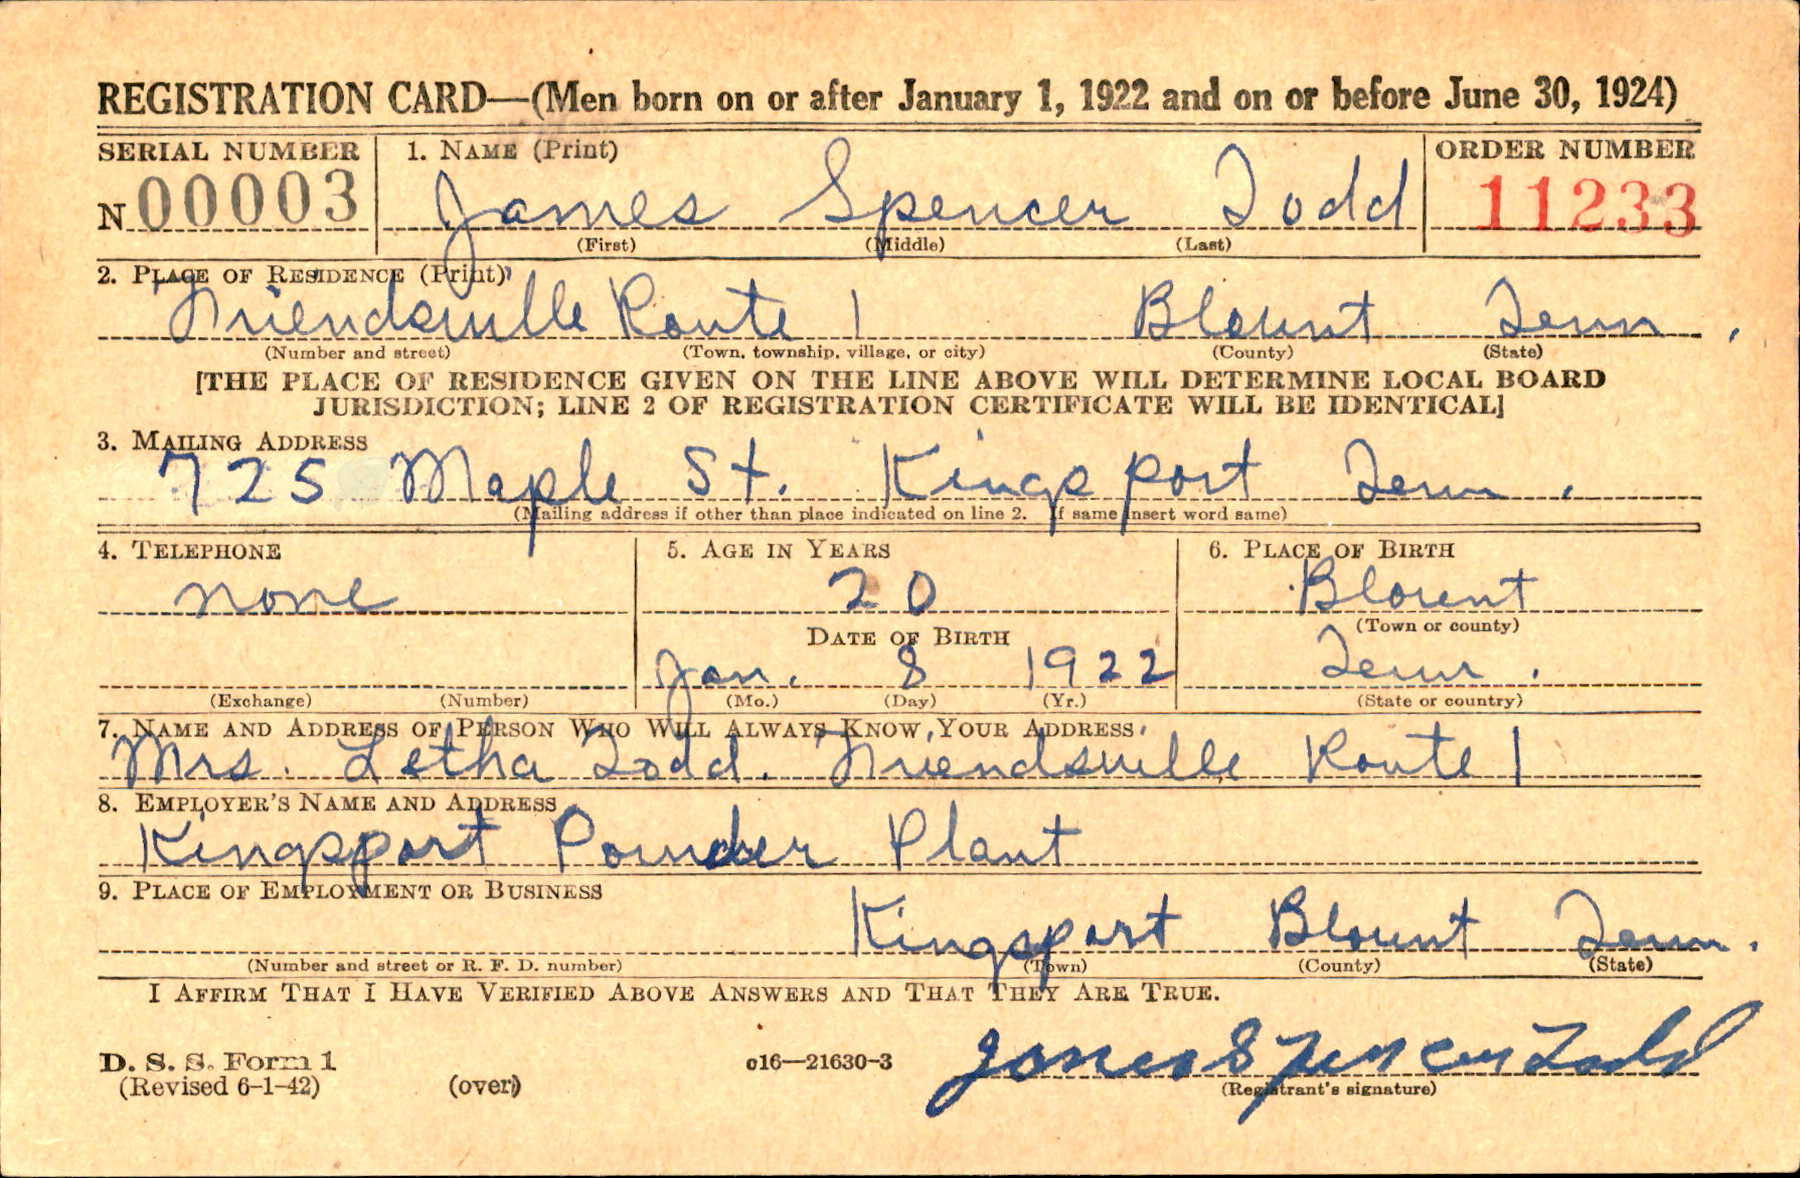 REGISTRATION CARD—(Men born on or after January 1, 1922 and on or before June 30, 1924)
SERIAL NUMBER 1. NAME (Print) ORDER NUMBER
N 00003 James Spencer Todd 11233
(First) (Middle) (Last)
2. PLACE OF RESIDENCE (Print)
Friendsville Route 1 Blount Tenn
(Number and street) (Town, township, village, or city) (County) (State)
[THE PLACE OF RESIDENCE GIVEN ON THE LINE ABOVE WILL DETERMINE LOCAL BOARD
JURISDICTION; LINE 2 OF REGISTRATION CERTIFICATE WILL BE IDENTICAL]
3. MAILING ADDRESS
725 Maple St. Kingsport Tenn.
(Mailing address if other than place indicated on line 2. If same insert word same)
4. TELEPHONE 5. AGE IN YEARS 6. PLACE OF BIRTH
none 20 Blount
(Town or county)
DATE OF BIRTH
Jan. 8 1922 Tenn.
(Exchange) (Number) (Mo.) (Day) (Yr.) (State or country)
7. NAME AND ADDRESS OF PERSON WHO WILL ALWAYS KNOW YOUR ADDRESS
Mrs. Letha Todd. Friendsville Route 1
8. EMPLOYER'S NAME AND ADDRESS
Kingsport Powder Plant
9. PLACE OF EMPLOYMENT OR BUSINESS
Kingsport Blount Tenn.
(Number and street or R. F. D. number) (Town) (County) (State)
I AFFIRM THAT I HAVE VERIFIED ABOVE ANSWERS AND THAT THEY ARE TRUE.
D. S. S. Form 1 c16—21630-3 James Spencer Todd
(Revised 6-1-42) (over) (Registrant's signature)